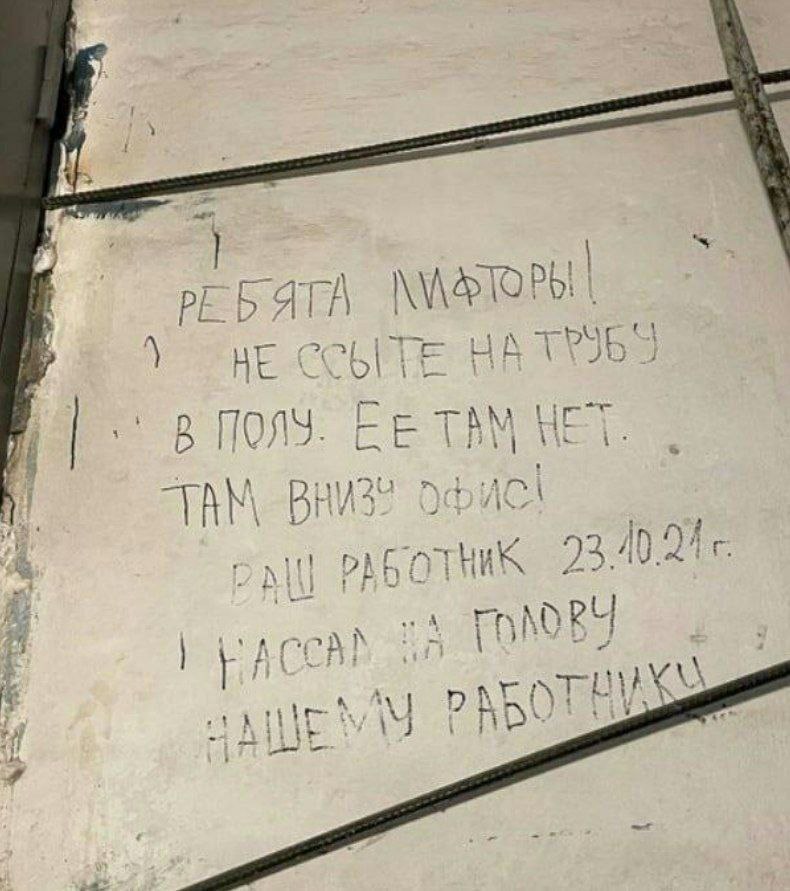 РЕБЯТА ЛИФТОРЫ!
НЕ ССЫТЕ НА ТРУБУ
В ПОЛУ. ЕЕ ТАМ НЕТ.
ТАМ ВНИЗУ ОФИС!
ВАШ РАБОТНИК 23.10.21 г.
НАССАЛ НА ГОЛОВУ
НАШЕМУ РАБОТНИКУ